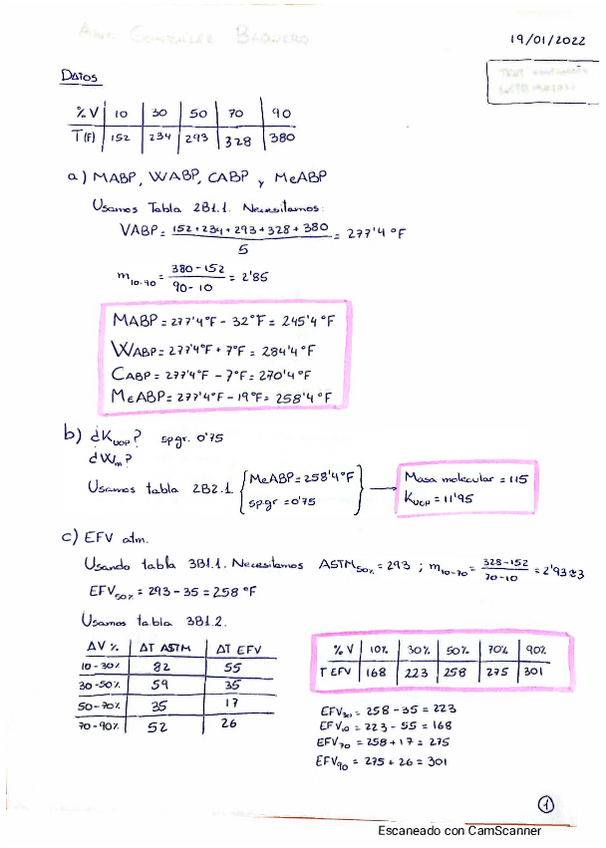 Ana González Baquero
19/01/2022
DATOS
%V | 10 | 30 | 50 | 70 | 90
T(F) | 152 | 234 | 293 | 328 | 380
a) MABP, WABP, CABP y MeABP
Usamos Tabla 2B1.1. Necesitamos:
VABP = 152+234+293+328+380 / 5 = 277'4 °F
m10-90 = 380-152 / 90-10 = 2'85
MABP = 277'4°F - 32°F = 245'4 °F
WABP = 277'4°F + 7°F = 284'4 °F
CABP = 277'4°F - 7°F = 270'4 °F
MeABP = 277'4°F - 19°F = 258'4 °F
b) ¿KUOP? spgr. 0'75
¿Wm?
Usamos tabla 2B2.1 { MeABP = 258'4°F
spgr = 0'75
Masa molecular = 115
KUOP = 11'95
c) EFV atm.
Usando tabla 3B1.1. Necesitamos ASTM50% = 293 ; m10-70 = 328-152 / 70-10 = 2'93≈3
EFV50% = 293 - 35 = 258 °F
Usamos tabla 3B1.2.
ΔV % | ΔT ASTM | ΔT EFV
10-30% | 82 | 55
30-50% | 59 | 35
50-70% | 35 | 17
70-90% | 52 | 26
%V | 10% | 30% | 50% | 70% | 90%
T EFV | 168 | 223 | 258 | 275 | 301
EFV30 = 258 - 35 = 223
EFV10 = 223 - 55 = 168
EFV70 = 258 + 17 = 275
EFV90 = 275 + 26 = 301
1
Escaneado con CamScanner